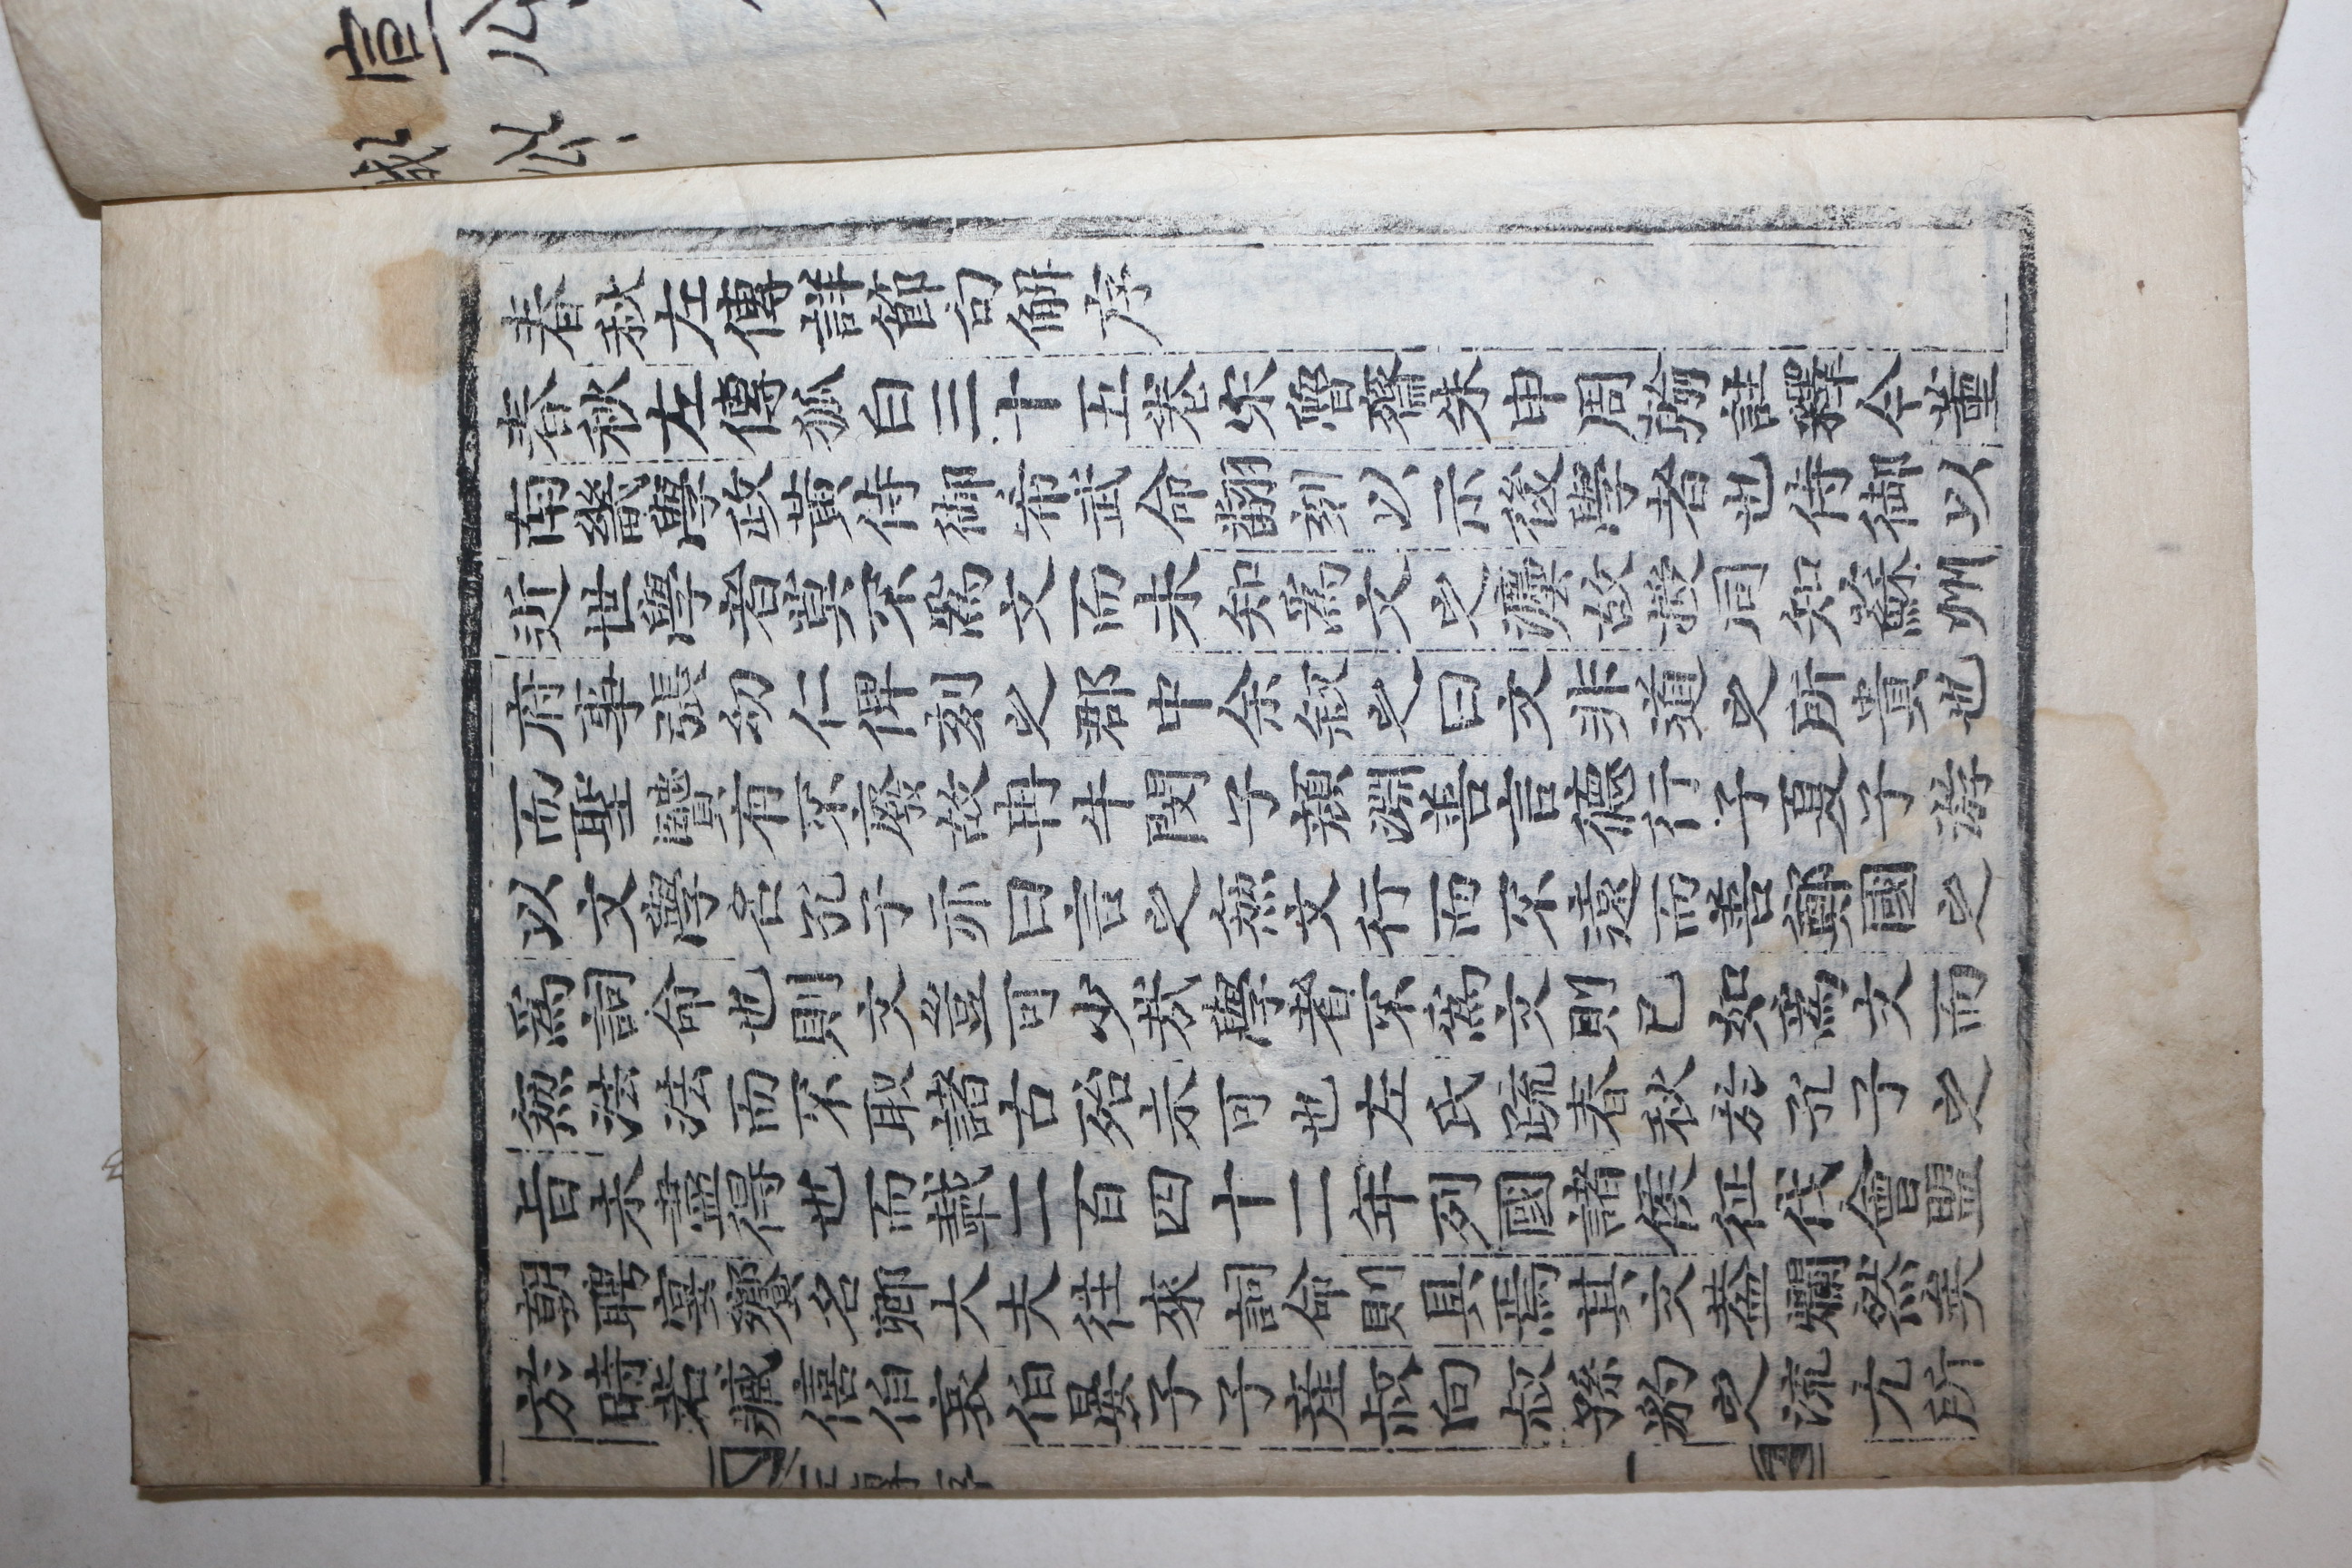 宣公
成公
春秋左傳詳節句解序
春秋左傳狐白三十五卷宋魯齋朱申周翰註釋今董
南畿學政黃侍御希武命翻刻以示後學者也侍御以
近世學者莫不爲文而未知爲文之灋故授同知蘇州
府事張幼仁俾刻之郡中余叙之曰文非道之所貴也
而聖賢有不廢故冉牛閔子顔淵善言德行子夏子游
以文學名孔子亦曰言之無文行而不遠而善鄭國之
爲詞命也則文豈可少哉學者不爲文則已如爲文而
無法法而不取諸古殆未可也左氏疏春秋於孔子之
旨未盡得也而載二百四十二年列國諸侯征伐會盟
朝聘宴饗名卿大夫往來詞命則具焉其文葢爛然矣
於時若臧僖伯哀伯晏子子產叔向叔孫豹之流尤所